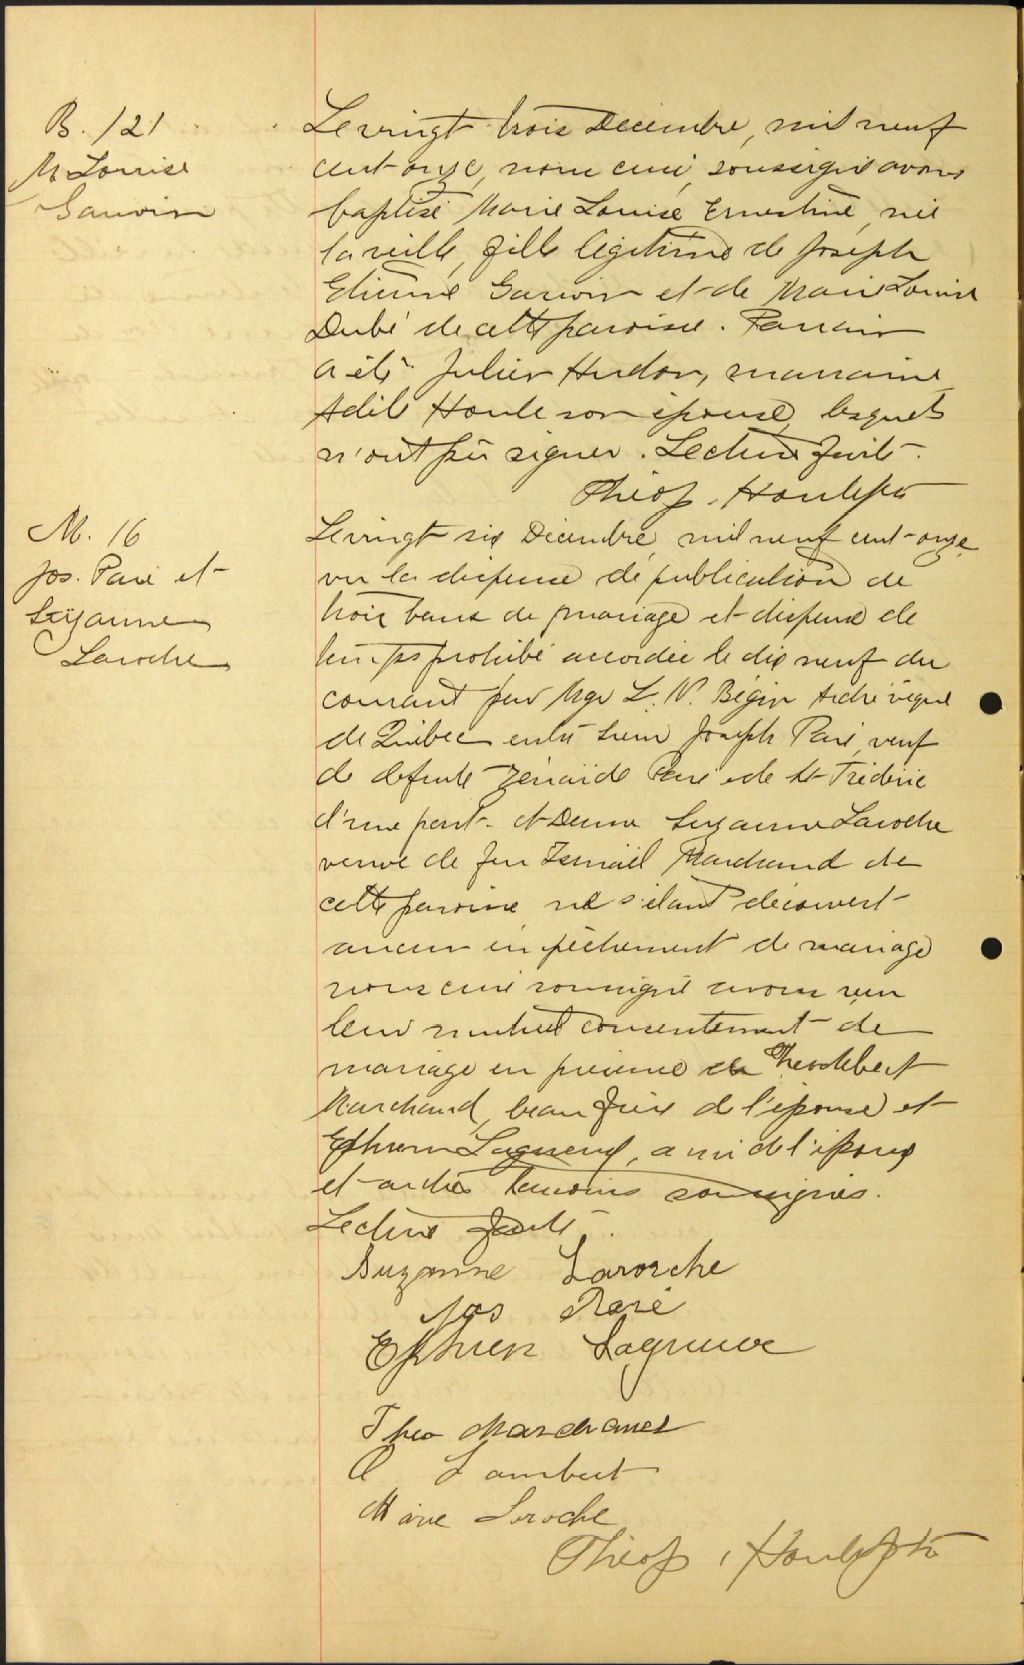 B. 121
M Louise
Gauvin
Le vingt trois Décembre, mil neuf
cent onze, nous curé soussigné avons
baptisé Marie Louise Ernestine, née
la veille, fille légitime de Joseph
Etienne Gauvin et de Marie Louise
Dubé de cette paroisse. Parrain
a été Julien Hudon, marraine
Adèle Houle son épouse, lesquels
n'ont pu signer. Lecture faite.
Théop. Houle ptre
M. 16
Jos. Paré et
Suzanne
Laroche
Le vingt six Décembre, mil neuf cent onze
vu la dispense de publication de
trois bans de mariage et dispense de
temps prohibé accordée le dix neuf du
courant par Mgr L. N. Bégin Archevêque
de Québec entre Sieur Joseph Paré, veuf
de défunte Zénaïde Paré de St Frédéric
d'une part et Dame Suzanne Laroche
veuve de feu Ismaël Marchand de
cette paroisse ne s'étant découvert
aucun empêchement de mariage
nous curé soussigné avons reçu
leur mutuel consentement de
mariage en présence de Théodebert
Marchand, beau frère de l'épouse et
Ephrem Lagueux, ami de l'époux
et autres témoins soussignés.
Lecture faite.
Suzanne Laroche
Jos Paré
Ephrem Lagueux
Theo Marchand
O Lambert
Marie Laroche
Théop. Houle ptre